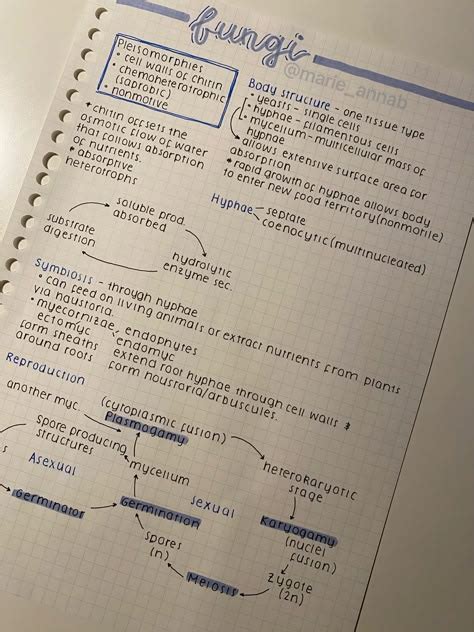 fungi
@marie_annab
Plesiomorphies
• cell walls of chitin
• chemoheterotrophic
(saprobic)
• nonmotive
* chitin offsets the
osmotic flow of water
that follows absorption
of nutrients.
• absorptive
heterotrophs
Body structure - one tissue type
• yeasts - single cells
• hyphae - filamentous cells
• mycelium - multicellular mass of
hyphae
allows extensive surface area for
absorption
* rapid growth of hyphae allows body
to enter new food territory (nonmotile)
Hyphae
septate
coenocytic (multinucleated)
soluble prod.
absorbed
substrate
digestion
hydrolytic
enzyme sec.
Symbiosis - through hyphae
• can feed on living animals or extract nutrients from plants
via haustoria.
• mycorrhizae, endophytes
ectomyc.
form sheaths
around roots
endomyc
extend root hyphae through cell walls &
form haustoria/arbuscules.
Reproduction
another myc.
(cytoplasmic fusion)
Plasmogamy
spore producing
structures
Asexual
mycelium
heterokaryotic
stage
s
Germinator
Germination
sexual
Karyogamy
(nuclei
fusion)
spores
(n)
Meiosis
zygote
(2n)